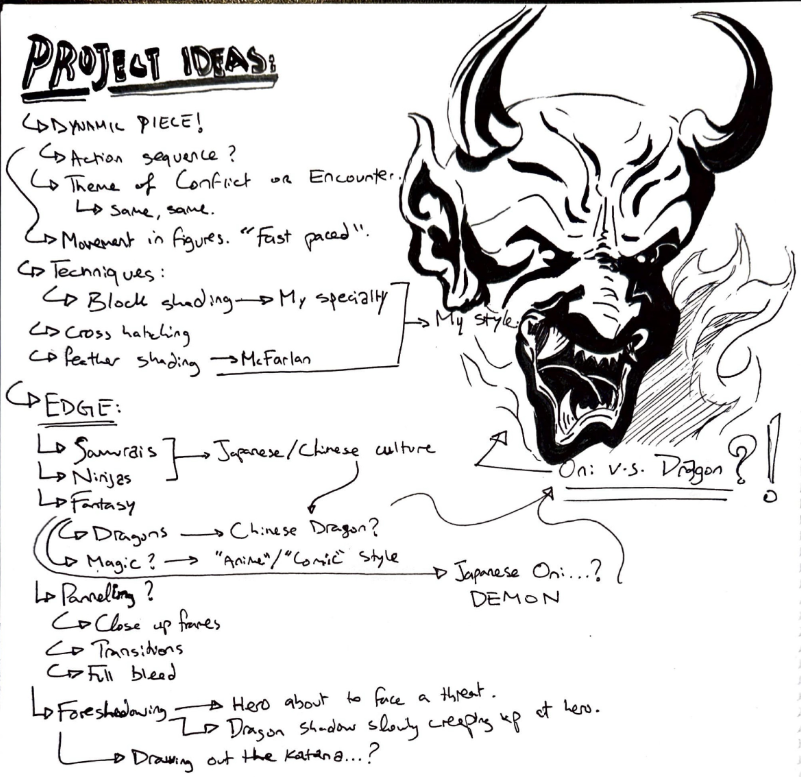 PROJECT IDEAS:
DYNAMIC PIECE!
Action sequence?
Theme of Conflict or Encounter.
Same, same.
Movement in figures. "Fast paced".
Techniques:
Block shading → My specialty
Cross hatching
feather shading → McFarlan
→ My style.
EDGE:
Samurais
Ninjas
→ Japanese/Chinese culture
Fantasy
Dragons → Chinese Dragon?
Magic? → "Anime"/"Comic" style
Oni v.s. Dragon?!
Japanese Oni...?
DEMON
Pannelling?
Close up frames
Transitions
Full bleed
Foreshadowing → Hero about to face a threat.
Dragon shadow slowly creeping up at hero.
Drawing out the Katana...?